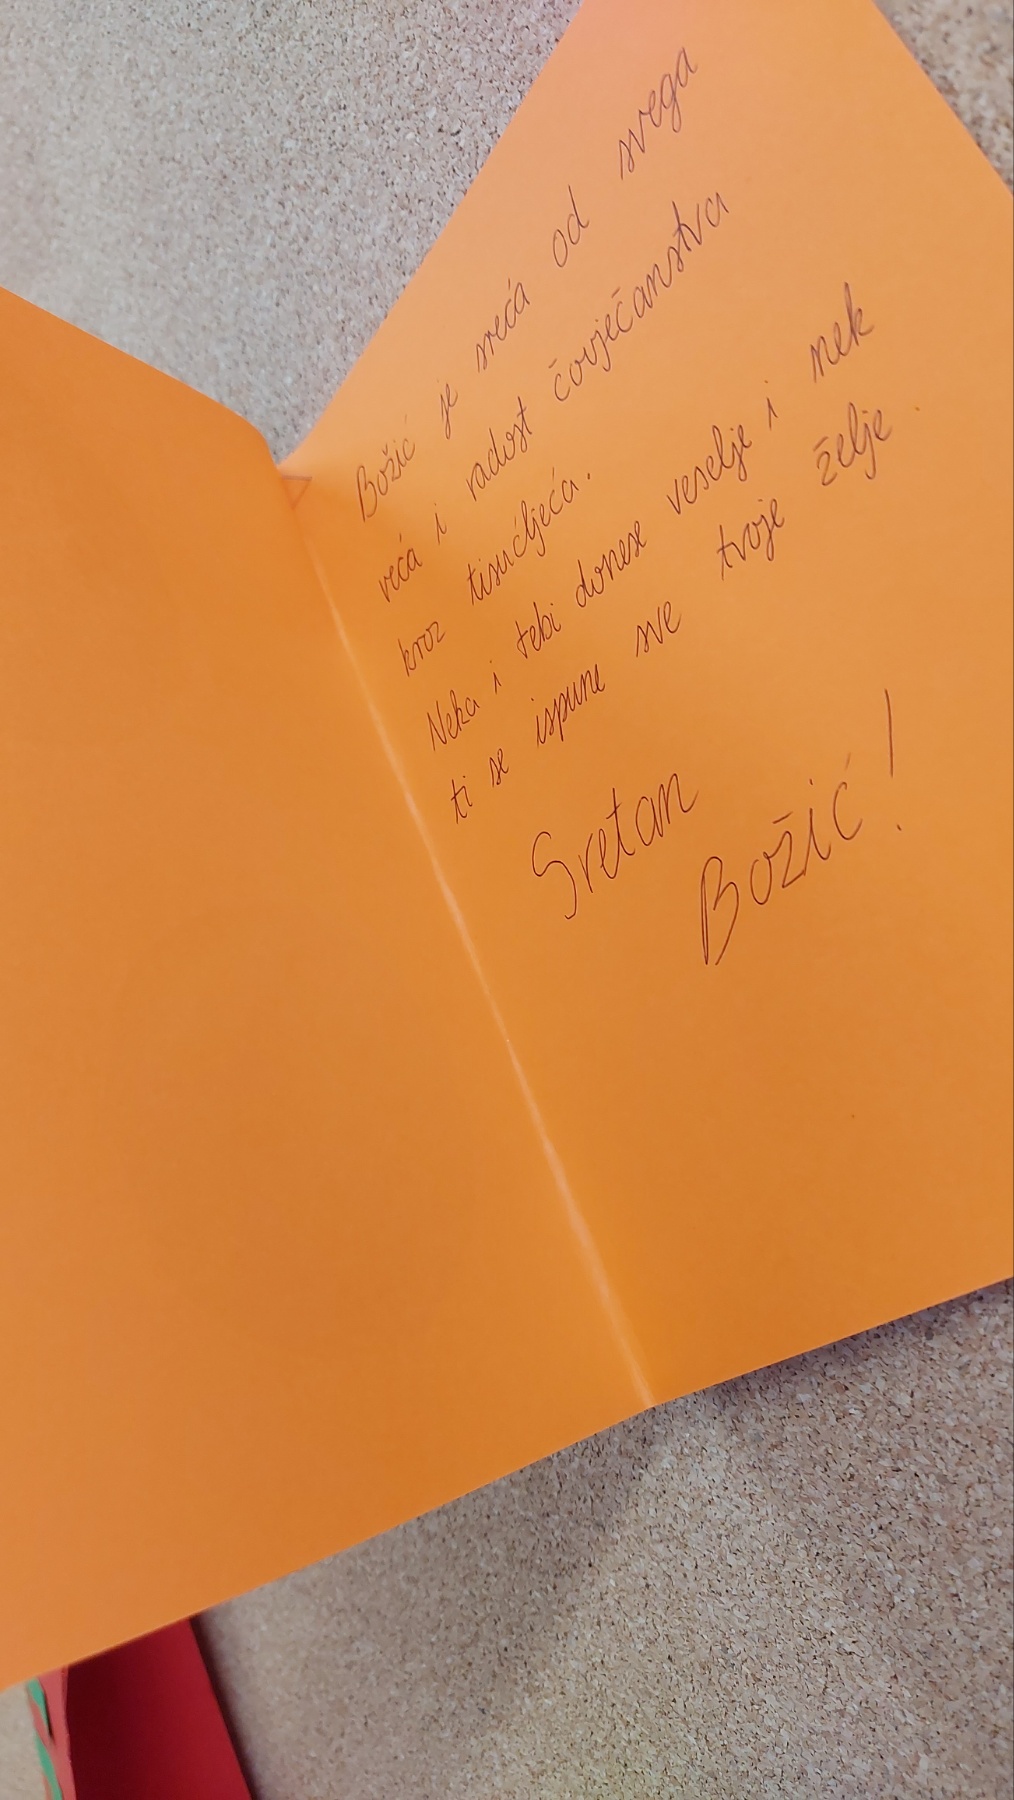 Božić je sreća od svega
veća i radost čovječanstva
kroz tisućljeća.
Neka i tebi donese veselje i nek
ti se ispune sve tvoje želje.
Sretan
Božić!